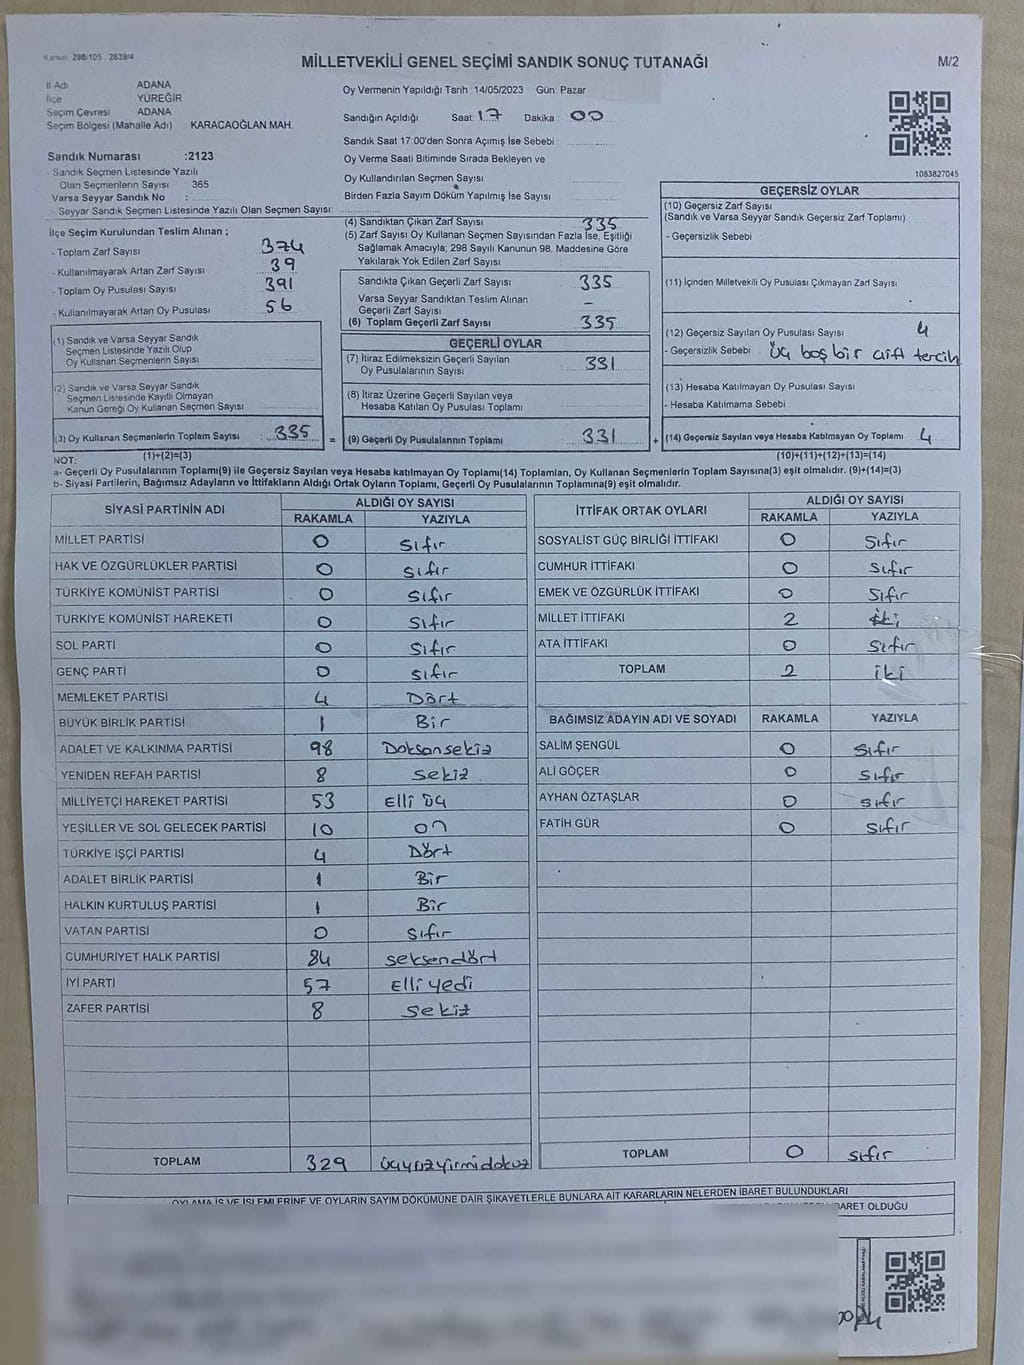 Kanun: 298/105 2839/4
MİLLETVEKİLİ GENEL SEÇİMİ SANDIK SONUÇ TUTANAĞI
M/2
İl Adı ADANA
İlçe YÜREĞİR
Seçim Çevresi ADANA
Seçim Bölgesi (Mahalle Adı) : KARACAOĞLAN MAH.
Sandık Numarası :2123
- Sandık Seçmen Listesinde Yazılı
Olan Seçmenlerin Sayısı : 365
Varsa Seyyar Sandık No :
- Seyyar Sandık Seçmen Listesinde Yazılı Olan Seçmen Sayısı:
İlçe Seçim Kurulundan Teslim Alınan ;
- Toplam Zarf Sayısı : 374
- Kullanılmayarak Artan Zarf Sayısı : 39
- Toplam Oy Pusulası Sayısı : 391
- Kullanılmayarak Artan Oy Pusulası : 56
(1) Sandık ve Varsa Seyyar Sandık
Seçmen Listesinde Yazılı Olup
Oy Kullanan Seçmenlerin Sayısı :
(2) Sandık ve Varsa Seyyar Sandık
Seçmen Listesinde Kayıtlı Olmayan
Kanun Gereği Oy Kullanan Seçmen Sayısı :
(3) Oy Kullanan Seçmenlerin Toplam Sayısı : 335
(1)+(2)=(3)
Oy Vermenin Yapıldığı Tarih :14/05/2023 Gün: Pazar
Sandığın Açıldığı Saat: 17 Dakika : 00
Sandık Saat 17:00'den Sonra Açımış İse Sebebi :
Oy Verme Saati Bitiminde Sırada Bekleyen ve
Oy Kullandırılan Seçmen Sayısı :
Birden Fazla Sayım Döküm Yapılmış İse Sayısı :
(4) Sandıktan Çıkan Zarf Sayısı : 335
(5) Zarf Sayısı Oy Kullanan Seçmen Sayısından Fazla İse, Eşitliği
Sağlamak Amacıyla; 298 Sayılı Kanunun 98. Maddesine Göre
Yakılarak Yok Edilen Zarf Sayısı :
Sandıkta Çıkan Geçerli Zarf Sayısı : 335
Varsa Seyyar Sandıktan Teslim Alınan
Geçerli Zarf Sayısı : –
(6) Toplam Geçerli Zarf Sayısı : 335
GEÇERLİ OYLAR
(7) İtiraz Edilmeksizin Geçerli Sayılan
Oy Pusulalarının Sayısı : 331
(8) İtiraz Üzerine Geçerli Sayılan veya
Hesaba Katılan Oy Pusulası Toplamı :
= (9) Geçerli Oy Pusulalarının Toplamı : 331
1083827045
GEÇERSİZ OYLAR
(10) Geçersiz Zarf Sayısı
(Sandık ve Varsa Seyyar Sandık Geçersiz Zarf Toplamı)
- Geçersizlik Sebebi
(11) İçinden Milletvekili Oy Pusulası Çıkmayan Zarf Sayısı
(12) Geçersiz Sayılan Oy Pusulası Sayısı 4
- Geçersizlik Sebebi : Üç boş bir çift tercih
(13) Hesaba Katılmayan Oy Pusulası Sayısı
- Hesaba Katılmama Sebebi
+ (14) Geçersiz Sayılan veya Hesaba Katılmayan Oy Toplamı 4
(10)+(11)+(12)+(13)=(14)
NOT:
a- Geçerli Oy Pusulalarının Toplamı(9) ile Geçersiz Sayılan veya Hesaba katılmayan Oy Toplamı(14) Toplamları, Oy Kullanan Seçmenlerin Toplam Sayısına(3) eşit olmalıdır. (9)+(14)=(3)
b- Siyasi Partilerin, Bağımsız Adayların ve İttifakların Aldığı Ortak Oyların Toplamı, Geçerli Oy Pusulalarının Toplamına(9) eşit olmalıdır.
SİYASİ PARTİNİN ADI ALDIĞI OY SAYISI
RAKAMLA YAZIYLA
MİLLET PARTİSİ 0 sıfır
HAK VE ÖZGÜRLÜKLER PARTİSİ 0 sıfır
TÜRKİYE KOMÜNİST PARTİSİ 0 sıfır
TÜRKİYE KOMÜNİST HAREKETİ 0 sıfır
SOL PARTİ 0 sıfır
GENÇ PARTİ 0 sıfır
MEMLEKET PARTİSİ 4 Dört
BÜYÜK BİRLİK PARTİSİ 1 Bir
ADALET VE KALKINMA PARTİSİ 98 Doksansekiz
YENİDEN REFAH PARTİSİ 8 sekiz
MİLLİYETÇİ HAREKET PARTİSİ 53 Elli üç
YEŞİLLER VE SOL GELECEK PARTİSİ 10 on
TÜRKİYE İŞÇİ PARTİSİ 4 Dört
ADALET BİRLİK PARTİSİ 1 Bir
HALKIN KURTULUŞ PARTİSİ 1 Bir
VATAN PARTİSİ 0 sıfır
CUMHURİYET HALK PARTİSİ 84 seksendört
İYİ PARTİ 57 Elli yedi
ZAFER PARTİSİ 8 sekiz
TOPLAM 329 üçyüzyirmidokuz
İTTİFAK ORTAK OYLARI ALDIĞI OY SAYISI
RAKAMLA YAZIYLA
SOSYALİST GÜÇ BİRLİĞİ İTTİFAKI 0 sıfır
CUMHUR İTTİFAKI 0 sıfır
EMEK VE ÖZGÜRLÜK İTTİFAKI 0 sıfır
MİLLET İTTİFAKI 2 iki
ATA İTTİFAKI 0 sıfır
TOPLAM 2 iki
BAĞIMSIZ ADAYIN ADI VE SOYADI RAKAMLA YAZIYLA
SALİM ŞENGÜL 0 sıfır
ALİ GÖÇER 0 sıfır
AYHAN ÖZTAŞLAR 0 sıfır
FATİH GÜR 0 sıfır
TOPLAM 0 sıfır
OYLAMA İŞ VE İŞLEMLERİNE VE OYLARIN SAYIM DÖKÜMÜNE DAİR ŞİKAYETLERLE BUNLARA AİT KARARLARIN NELERDEN İBARET BULUNDUKLARI
İBARET OLDUĞU